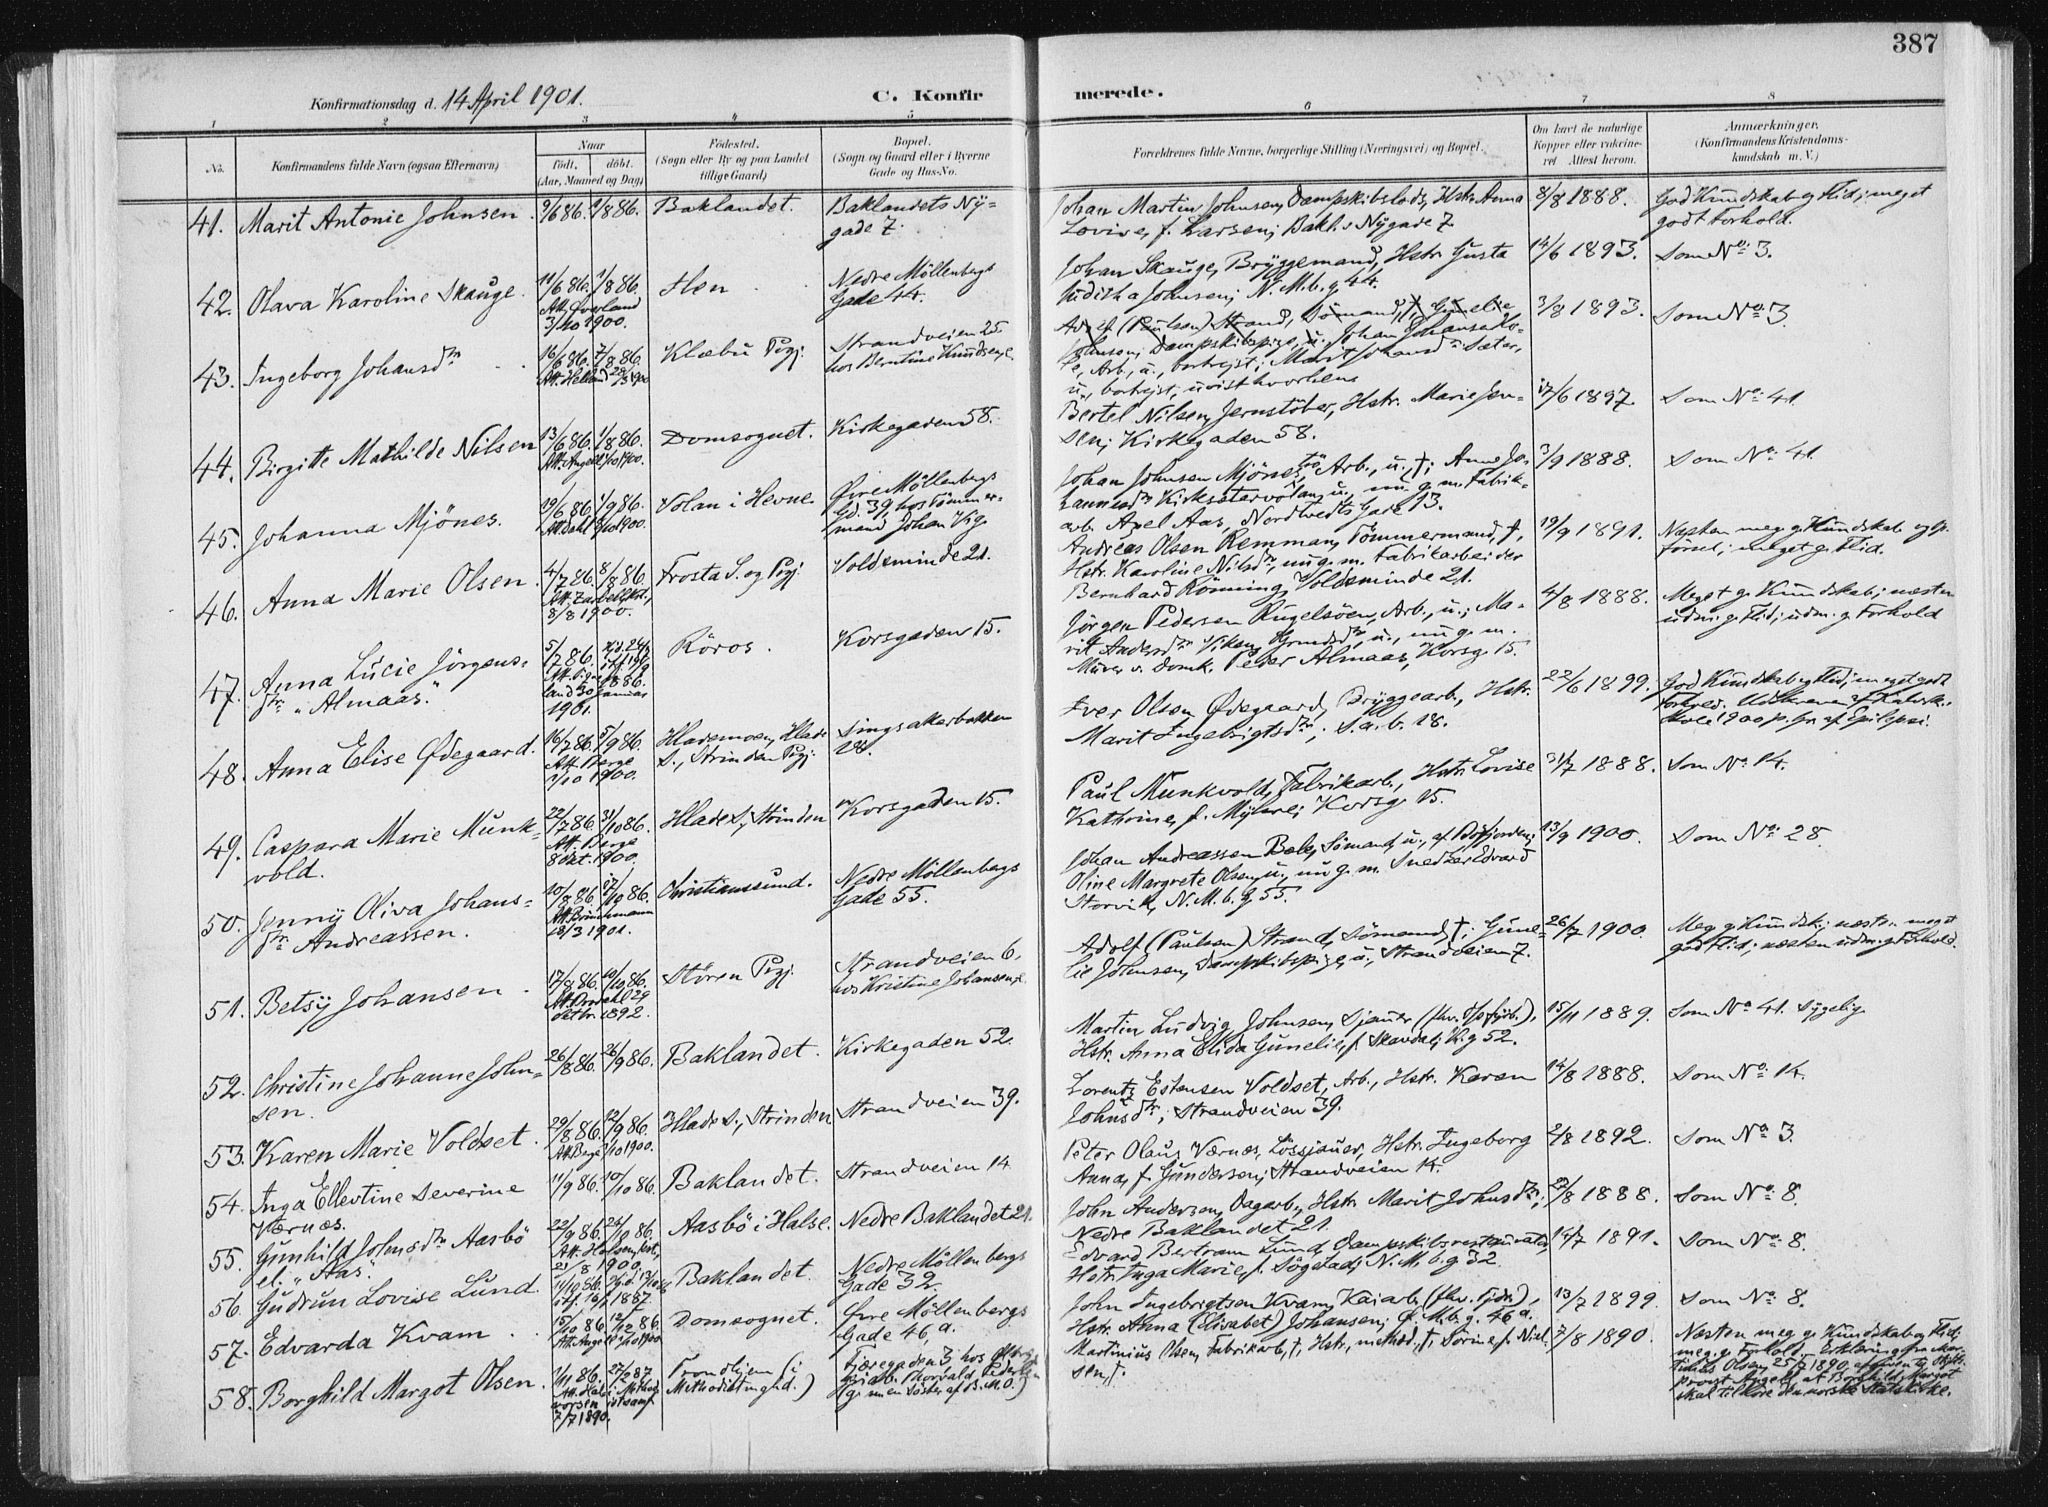 387
Konfirmationsdag d. 14 April 1901.
C. Konfirmerede.
1 2 3 4 5 6 7 8
No.
Konfirmandens fulde Navn (ogsaa Efternavn)
Naar
födt. döbt.
(Aar, Maaned og Dag)
Födested.
(Sogn eller By og paa Landet
tillige Gaard)
Bopæl.
(Sogn og Gaard eller i Byerne
Gade og Hus-No.
Forældrenes fulde Navne, borgerlige Stilling (Næringsvei) og Bopæl.
Om havt de naturlige
Kopper eller vakcine-
ret Attest herom.
Anmærkninger.
(Konfirmandens Kristendoms-
kundskab m. V.)
41. Marit Antonie Johnsen. 9/6 86. 1/8 86. Baklandet. Baklandets Ny=
gade 7.
Johan Martin Johnsen, Dampskibslods, Hstr. Anna
Lovise, f. Larsen; Bakl.s Nygade 7.
8/8 1888.
God Kundskab og Flid; meget
godt Forhold.
42. Olava Karoline Skauge. 11/6 86. 1/8 86. Hen
Att. Øverland
3/10 1900.
Nedre Möllenbergs
Gade 44.
Johan Skauge, Bryggemand, Hstr. Gusta
Juditha Johnsen; N. M.b.g. 44.
14/6 1893. Som No. 3.
43. Ingeborg Johansdtr. 16/6 86. 7/8 86. Klæbu Pgj.
Strandveien 25
hos Berntine Knudsen,
Adolf (Paulsen) Strand, Sömand, †, Gunelie
Johnsen, Dampskibspige, u. Johan Johansen
Arb., u., bortrejst; Marit Johansd
u., bortrejst, uvist hvorhen
3/8 1893. Som No. 3
44. Birgitte Mathilde Nilsen 13/6 86. 1/8 86. Domsognet. Kirkegaden 58.
Bertel Nilsen, Jernstöber, Hstr. Marie Jen-
sen; Kirkegaden 58.
17/6 1897. Som No. 41
45. Johanna Mjönes. 19/6 86. 1/9 86. Volan i Hevne.
Øvre Möllenbergs
Gd. 39, hos Tömmer-
mand Johan Vig.
Johan Johnsen Mjönes, Arb., u., †; Anne Jo-
hannesdtr. Kirksætervolan, u., nu g. m. Fabrik-
arb. Axel Aas, Nordtvedts Gade 13.
3/9 1888. Som No. 41.
46. Anna Marie Olsen. 4/7 86. 8/8 86. Frosta S. og Pgj. Voldsminde 21.
8/8 1900.
Andreas Olsen Remman, Tömmermand, †,
Hstr. Karoline Nilsdtr., nu g. m. Fabrikarbeider
Bernhard Rönning, Voldsminde 21.
19/9 1891.
Næsten meg. g. Kundskab og Op-
førsel; meget g. Flid.
47. Anna Lucie Jörgens=
dtr. "Almaas." 5/7 86. Röros. Korsgaden 15.
Jörgen Pedersen Rugelsöen, Arb., u.; Ma-
rit Andersdtr. Viken, u., nu g. m.
Murer o. Domk. Peder Almaas, Korsg. 15.
4/8 1888.
Meget g. Kundskab; næsten
udm. g. Flid; udm. g. Forhold
48. Anna Elise Ødegaard. 16/7 86. 5/9 86.
Att. Berge
1/10 1900.
Hlademoen, Hlade
S., Strinden Pgj.
Singsakerbakken
18.
Iver Olsen Ødegaard, Bryggearb., Hstr.
Marit Ingebrigtsdtr.; S.a.b. 18.
22/6 1899.
God Kundskab og Flid; meget godt
Forhold. Udskreven af Kateds-
skole 1900 p. Gr. af Epilepsi.
49. Caspara Marie Munk-
vold. 22/7 86. 31/10 86. Hlade S., Strinden Korsgaden 15.
Att. Berge
8 Okt. 1900.
Paul Munkvold, Fabrikarb., Hstr. Lovise
Kathrine, f. Myhre; Korsg. 15.
31/7 1888. Som No. 14.
50. Jenny Oliva Johans=
dtr. Andreassen. 10/8 86. 17/10 86. Christianssund.
Nedre Möllenbergs
Gade 55.
18/3 1901.
Johan Andreassen Bele, Sömand, u., af Bofjorden;
Oline Margrete Olsen, u., nu g. m. Snedker Edvard
Storvik, N. M. b. g. 55.
13/9 1900. Som No. 28.
51. Betsy Johansen. 17/8 86. 10/10 86. Stören Pgj.
Strandveien 6,
hos Kristine Johansen,
Oktbr. 1892.
Adolf (Paulsen) Strand, Sömand, †; Gune-
lie Johnsen, Dampskibspige, u., Strandveien 7.
26/7 1900.
Meg. g. Kundsk.; næsten meget
god Flid; næsten udm. g. Forhold.
52. Christine Johanne John=
sen. 26/8 86. 26/9 86. Baklandet. Kirkegaden 52.
Martin Ludvig Johnsen, Sjauer (fhv. ).
Hstr. Anna Elida Gunelie, f. Skavdal; K.g. 52.
15/11 1889. Som No. 41. Sygelig
53. Karen Marie Voldset. 29/8 86. 12/9 86. Hlade S., Strinden Strandveien 39.
Lorentz Estensen Voldset, Arb., Hstr. Karen
Johnsdtr.; Strandveien 39.
14/8 1888. Som No. 14.
54. Inga Ellevtine Severine
Værnæs. 11/9 86. 10/10 86. Baklandet. Strandveien 14
Peter Olaus Værnæs, Lössjauer, Hstr. Ingeborg
Anna, f. Gundersen; Strandveien 14.
2/8 1892. Som No. 3.
55. Gunhild Johnsdtr. Aasbö
el. "Aas." 22/9 86. 24/10 86. Aasbö i Halse. Nedre Baklandet 21.
21/8 1900.
John Andersen, Dagarb., Hstr. Marit Johnsdtr.;
Nedre Baklandet 21.
22/8 1888. Som No. 8.
56. Gudrun Lovise Lund. 11/10 86. Baklandet.
Nedre Möllenbergs
Gade 32.
Edvard Bertram Lund, Dampskibsrestauratör,
Hstr. Inga Marie, f. Søgstad, N. M. b. g 32.
14/7 1891. Som No. 8.
57. Edvarda Kvam. 15/10 86. 12/12 86. Domsognet.
Øvre Möllenbergs
Gade 46 a.
John Ingebrigtsen Kvam, Kaiarb. (fhv. ),
Hstr. Anna (Elisabet) Johansen; Ø. M.b.g. 46 a.
13/7 1899. Som No. 8.
58. Borghild Margot Olsen. 1/11 86. 27/2 87.
7/7 1890.
Trondhjem (i
Methodistmghd.)
Fjæregaden 3 hos
Thorvald Pedersen
(g. m. en Söster af B. M. O.)
Martinius Olsen, Fabrikarb., †, Hstr., method., †, Sörine, f. Niel-
sen, †.
7/8 1890.
Næsten meg. g. Kundskab og Flid;
meg. g. Forhold. Erklæring fra Mar-
tinius Olsen, 25/7 1890, afgivet f. Stifts-
provst Angell, at Borghild Margot
skal tilhöre den norske Statskirke.